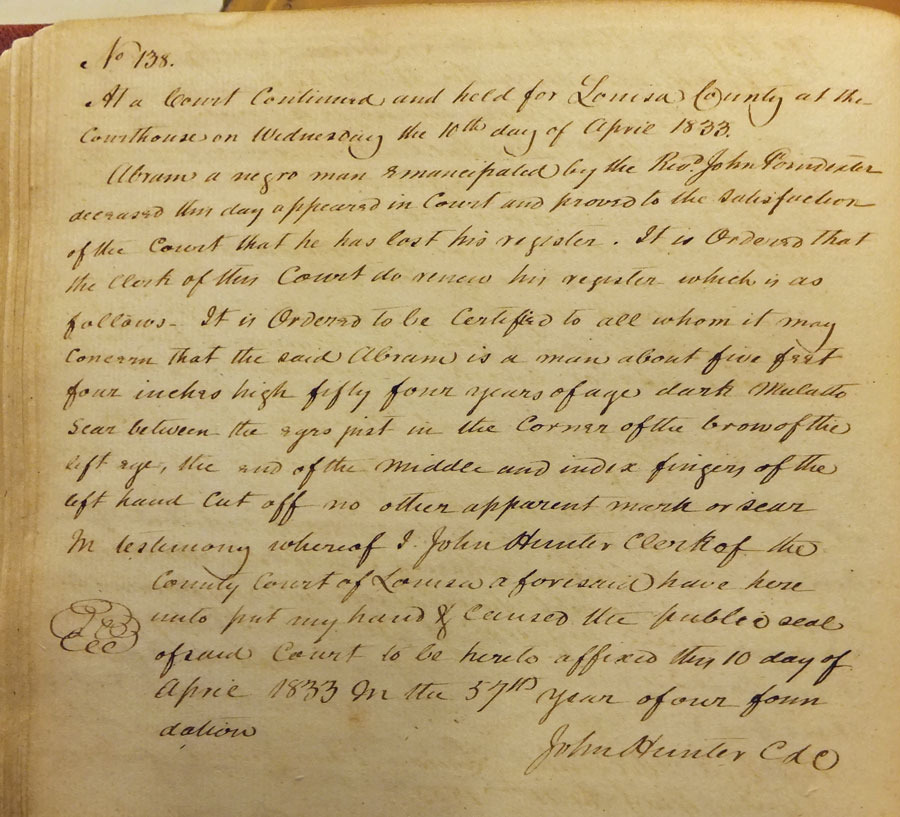 No 138.
At a Court Continued and held for Louisa County at the
Courthouse on Wednesday the 10th day of April 1833.
Abram a negro man Emancipated by the Revd. John Poindexter
deceased this day appeared in Court and proved to the satisfaction
of the Court that he has lost his register. It is Ordered that
the Clerk of this Court do renew his register which is as
follows - It is Ordered to be Certified to all whom it may
Concern that the said Abram is a man about five feet
four inches high fifty four years of age dark Mulatto
Scar between the eyes just in the Corner of the brow of the
left eye, the end of the middle and index fingers of the
left hand Cut off no other apparent mark or scar
In testimony whereof I John Hunter Clerk of the
County Court of Louisa aforesaid have here
unto put my hand & Caused the public seal
of said Court to be hereto affixed this 10 day of
April 1833 In the 57th year of our foun
dation
John Hunter C L C